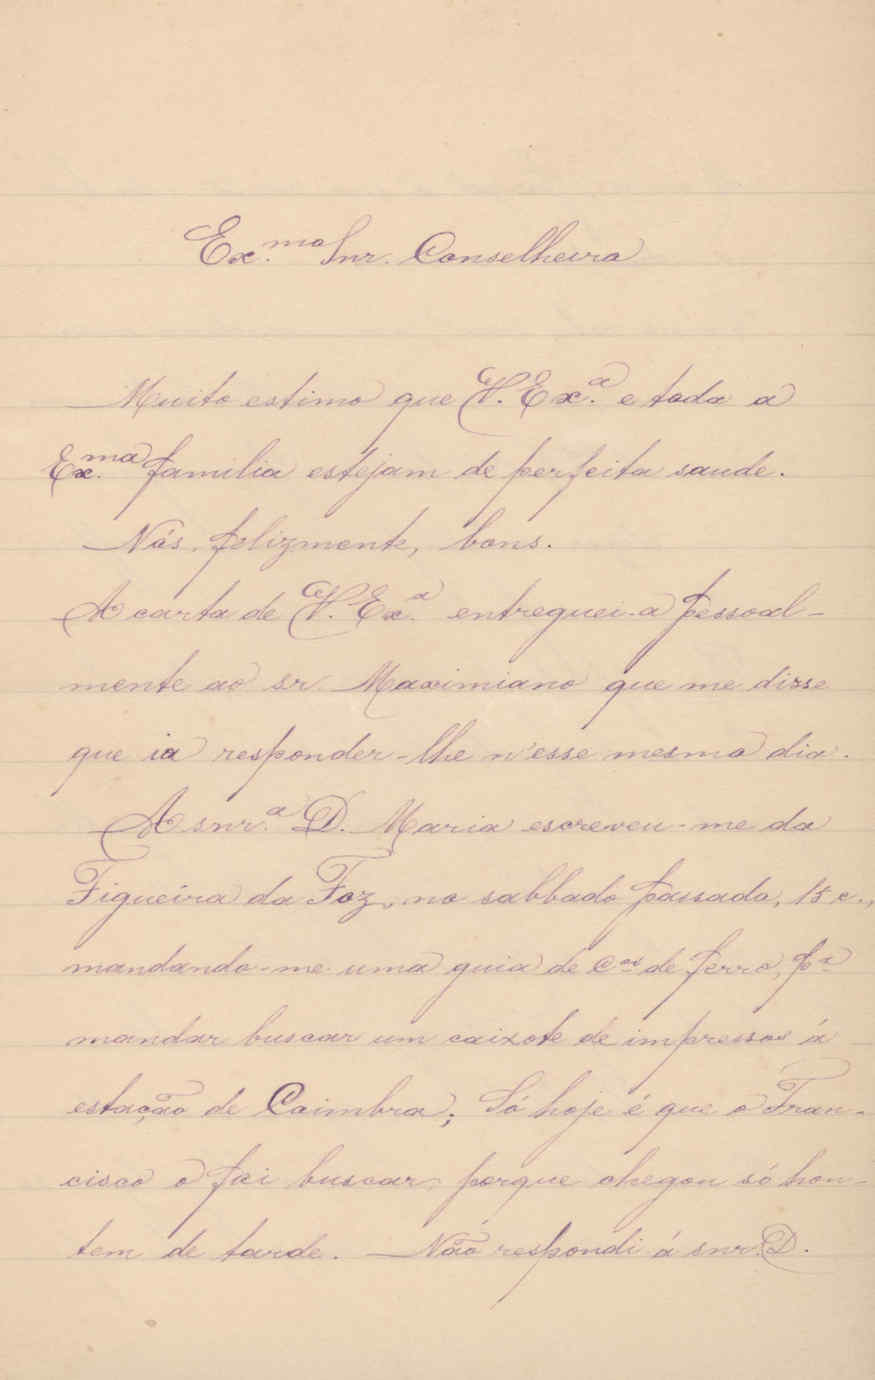 Ex.mo Snr. Conselheiro
Muito estimo que V. Ex.a e toda a
Ex.ma familia estejam de perfeita saude.
Nós, felizmente, bons.
A carta de V. Ex.a entreguei-a pessoal-
mente ao sr. Maximiano que me disse
que ia responder-lhe n'esse mesmo dia.
A snr.a D. Maria escreveu-me da
Figueira da Foz, no sabbado passado, 15 c.,
mandando-me uma guia de c.os de ferro, p.a
mandar buscar um caixote de impressos á
estação de Coimbra; Só hoje é que o Fran-
cisco o foi buscar, porque chegou só hon-
tem de tarde. — Não respondi á snr. D.